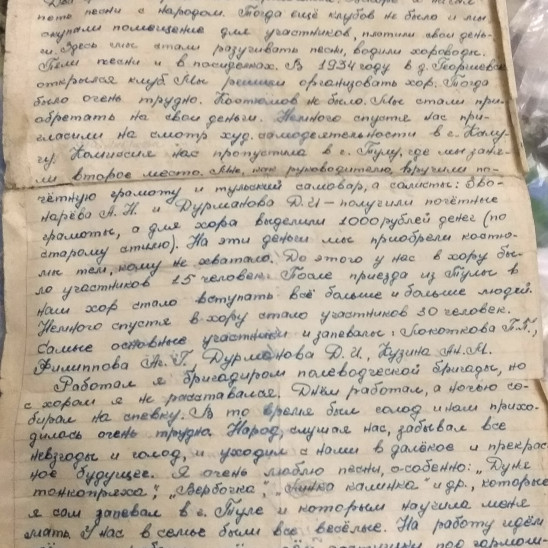 петь песни с народом. Тогда ещё клубов не было и мы
помещение для участников, платили свои день-
ги. Здесь мы стали разучивать песни, водили хороводы.
Пели песни и в посиделках. В 1934 году в д. Георгиевс
открылся клуб. Мы решили организовать хор. Тогда
было очень трудно. Костюмов не было. Мы стали при-
обретать на свои деньги. Немного спустя нас при-
гласили на смотр худ. самодеятельности в г. Калу-
гу. Комиссия нас пропустила в г. Тулу, где мы заня-
ли второе место. Мне, как руководителю, вручили по-
чётную грамоту и тульский самовар, а солисты: Зво-
нарева А. Н. и Дурманова Д. И – получили почётные
грамоты, а для хора выделили 1000 рублей денег (по
старому стилю). На эти деньги мы приобрели костю-
мы тем, кому не хватало. До этого у нас в хору бы-
ло участников 15 человек. После приезда из Тулы в
наш хор стало вступать всё больше и больше людей.
Немного спустя в хору стало участников 30 человек.
Самые основные участники и запевалы:
Филиппова Дурманова Д. И., Кузина Ан. М.
Работал я бригадиром полеводческой бригады, но
с хорам я не расставался. Днём работал, а ночью со-
бирал на спевку. В то время был голод и нам прихо-
дилось очень трудно. Народ, слушая нас, забывал все
невзгоды и голод, и уходил с нами в далёкое и прекрас
ное будущее. Я очень люблю песни, особенно: „Дуня
тонкопряха", „Вербочка", калинка" и др., которые
я сам запевал в г. Туле и которым научила меня
мать. У нас в семье были все весёлые. На работу идём
под гармош-